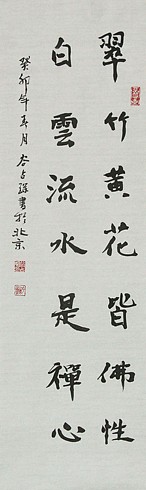 翠竹黄花皆佛性
白雲流水是禪心
癸卯年春月谷占強書於北京